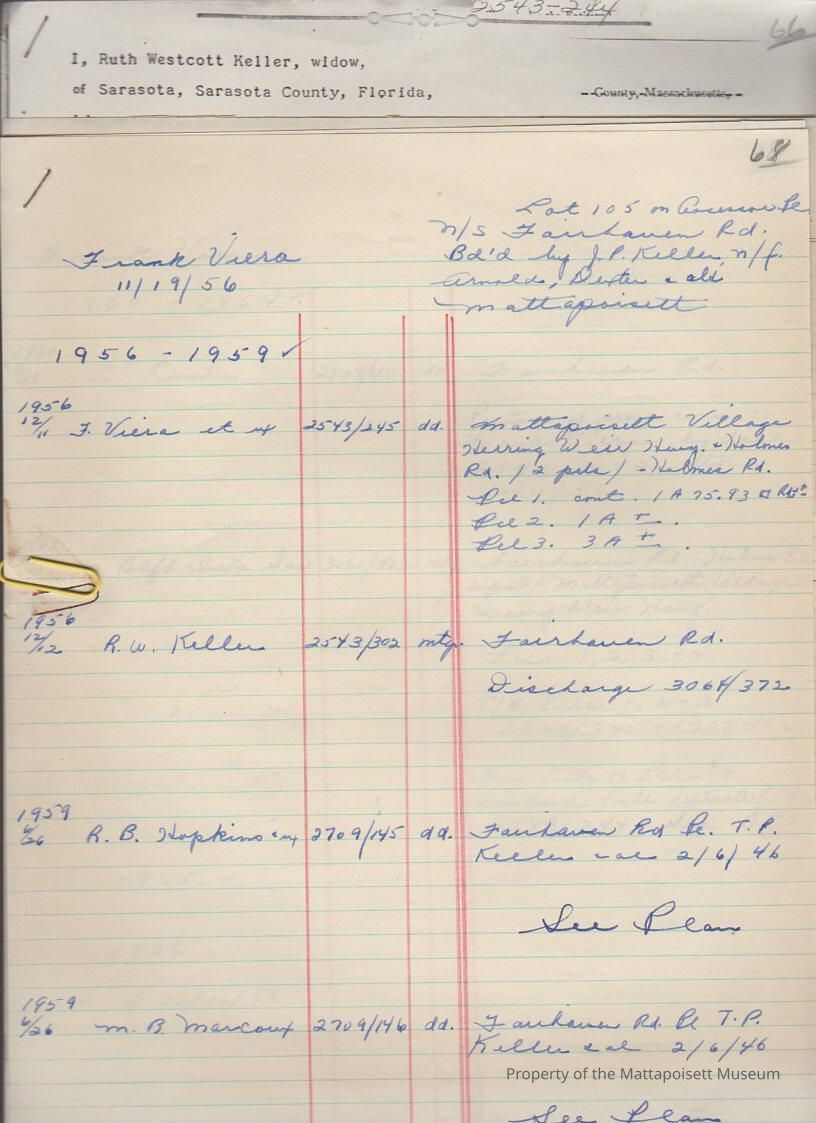 2543-244
66
I, Ruth Westcott Keller, widow,
of Sarasota, Sarasota County, Florida,
County, Massachusetts,
68
Lot 105 on Assessor Pl
N/S Fairhaven Rd.
Frank Viera
Bd'd by J.P. Keller, n/f.
11/19/56
Arnolds, Dexter & als
Mattapoisett
1956 - 1959 ✓
1956
12/11 F. Viera et ux 2543/245 dd. Mattapoisett Village
Herring Weir Hwy. & Holmes
Rd. / 2 pcls / - Holmes Rd.
Pcl 1. cont. 1 A 75.93 □ Rds ±
Pcl 2. 1 A ±.
Pcl 3. 3 A ±.
1956
12/12 R. W. Keller 2543/302 mtg. Fairhaven Rd.
Discharge 3064/372
1959
6/26 R. B. Hopkins & ux 2709/145 dd. Fairhaven Rd Pl. T. P.
Keller & al 2/6/46
See Plan
1959
6/26 M. B. Marcoux 2709/146 dd. Fairhaven Rd. Pl T. P.
Keller & al 2/6/46
Property of the Mattapoisett Museum
See Plan